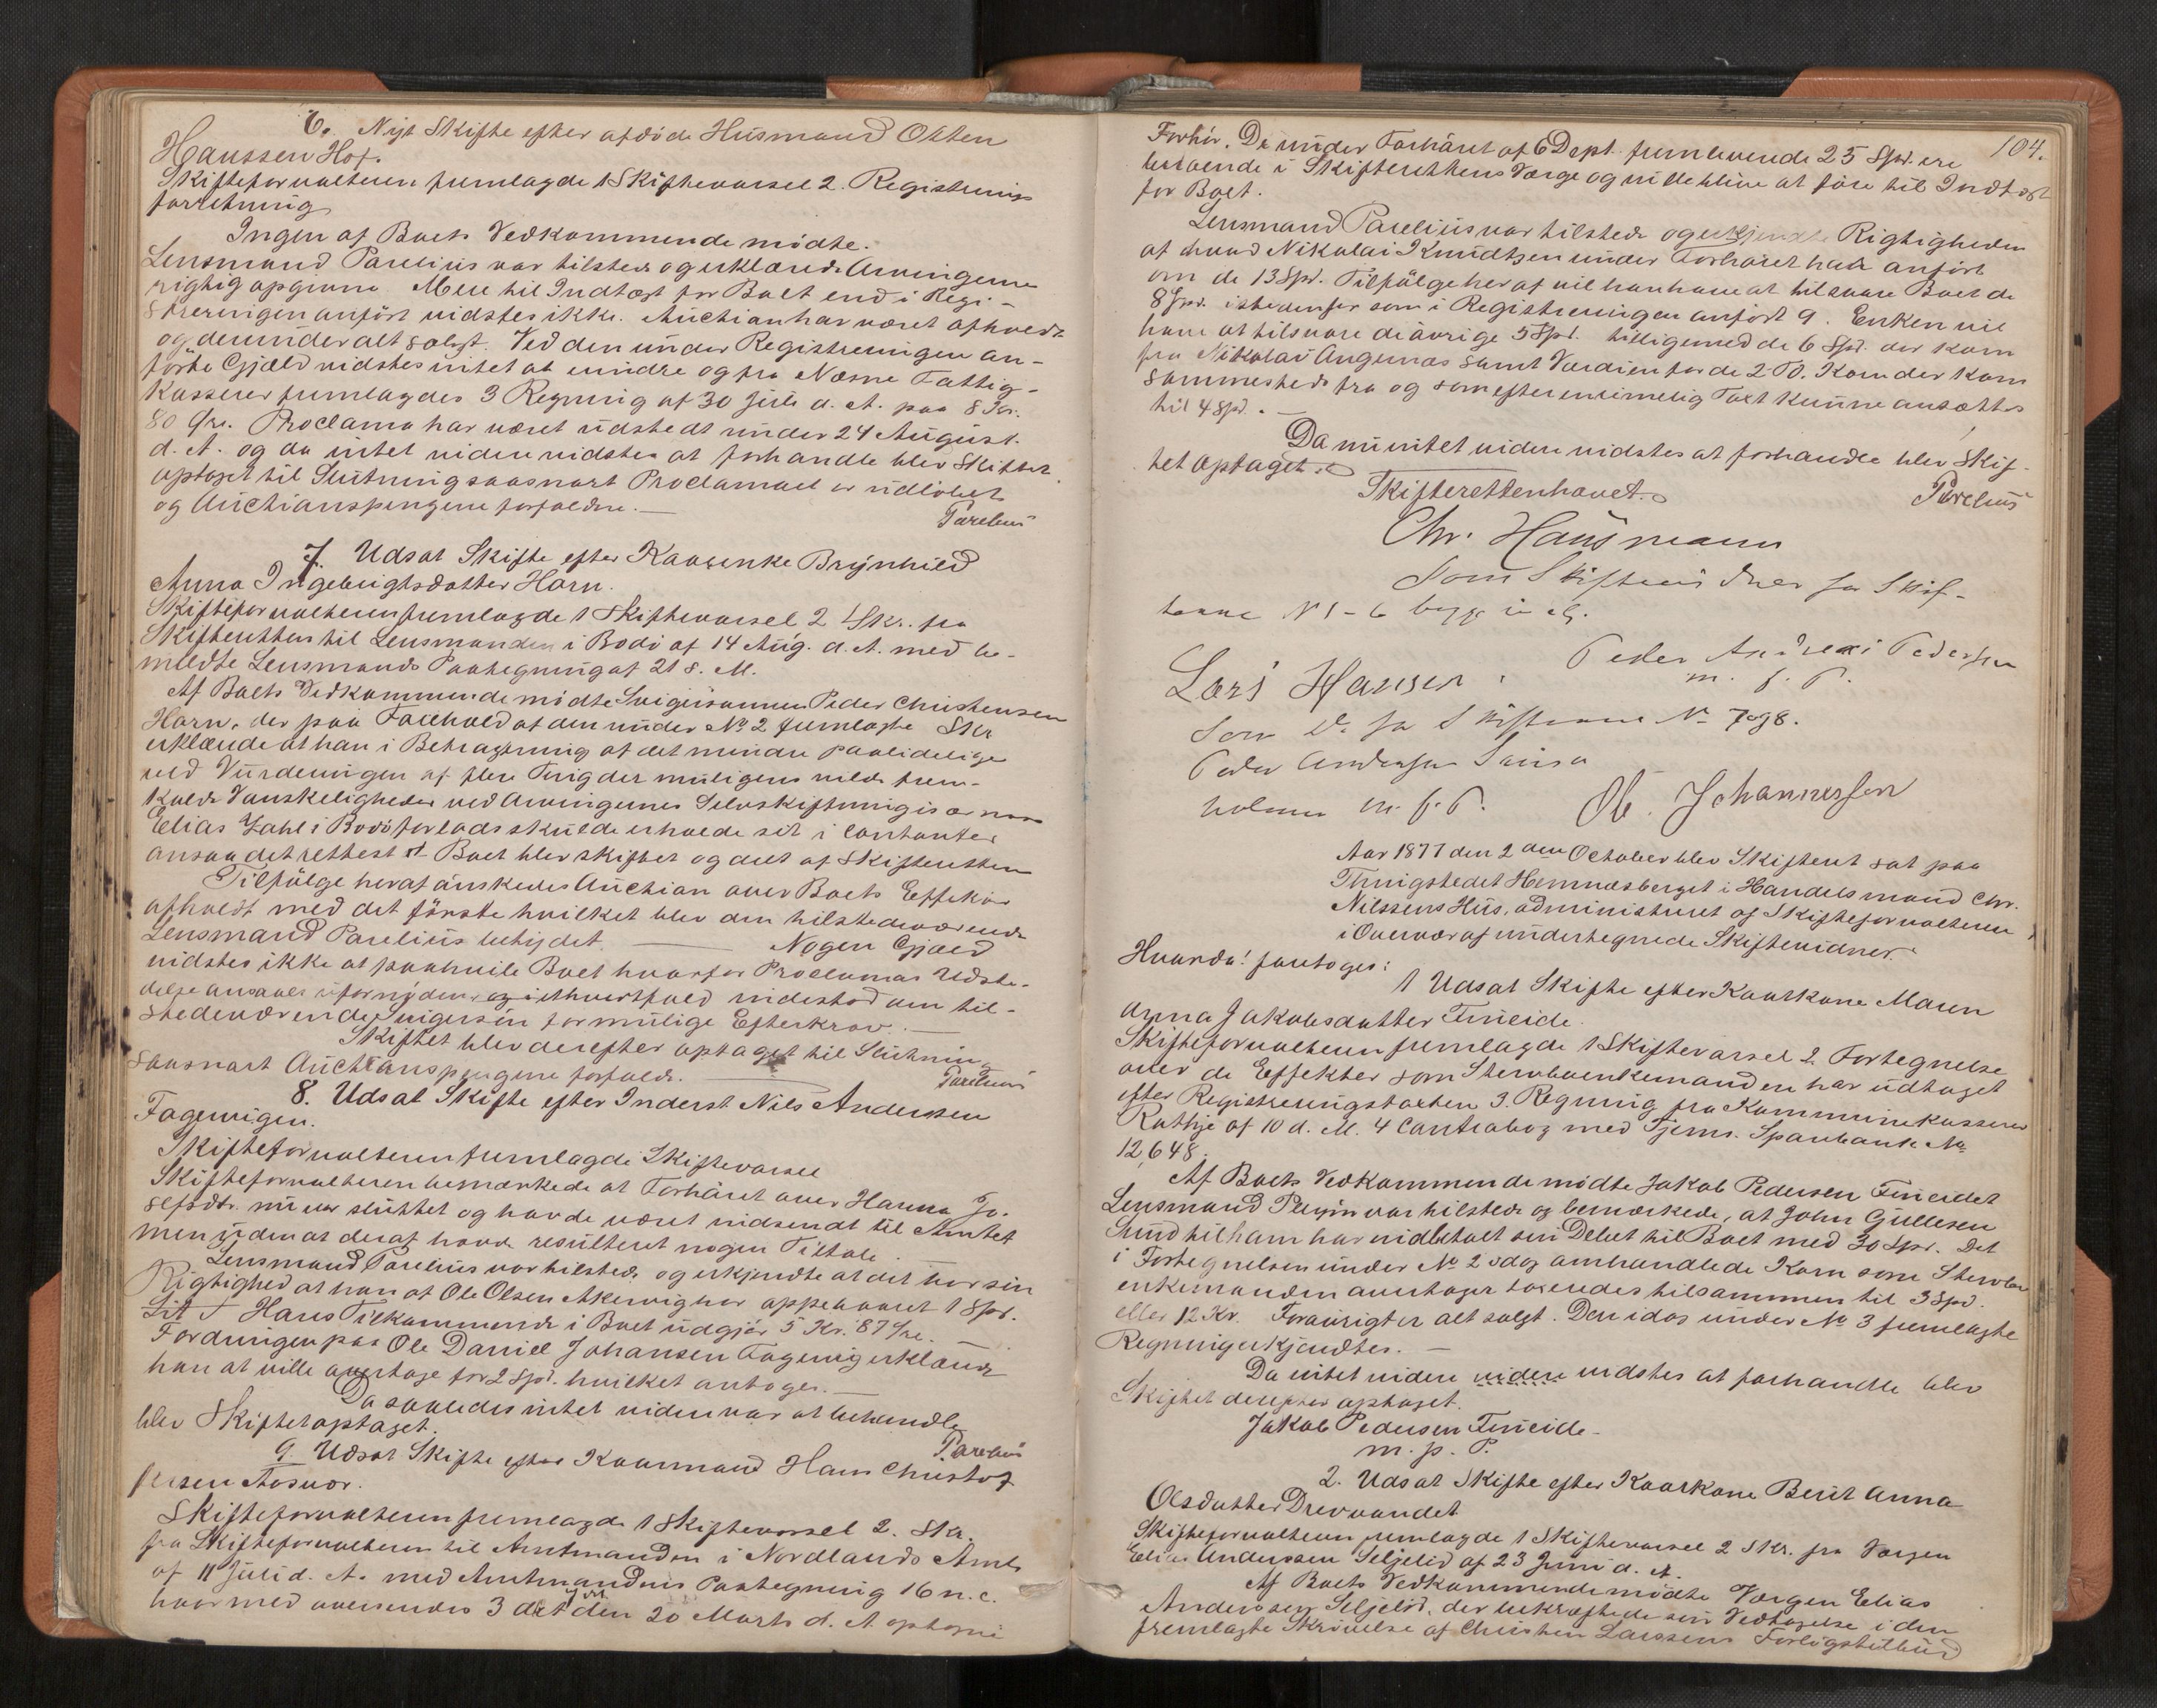 6. Nyt Skifte efter afdøde Husmand Otten
Hanssen Hof.
Skifteforvalteren fremlagde 1 Skiftevarsel 2. Registrerings
forretning
Ingen af Boets Vedkommende mødte.
Lensmand Parelius var tilstede og erklærede Arvingerne
rigtig opgivne. Mere til Indtægt for Boet end i Regi-
streringen anført vidstes ikke. Auction har været afholdt
og derunder alt solgt. Ved den under Registreringen an-
førte Gjæld vidstes intet at erindre og fra Næsne Fattig-
kasserer fremlagdes 3 Regning af 30 Juli d. A. paa 8 Kr.
80 Øre. Proclama har været udstedt under 24 August
d. A. og da intet videre vidstes at forhandle blev Skiftet
optaget til Slutning saasnart Proclamaet er udløbet
og Auctionspengene forfaldne.—
Parelius
7. Udsat Skifte efter Kaarenke Brynhild
Anna Ingebrigtsdatter Horn.
Skifteforvalteren fremlagde 1 Skiftevarsel 2 Skr. fra
Skifteretten til Lensmanden i Bodø af 14 Aug. d. A. med be-
meldte Lensmands Paategning af 21 s. M.
Af Boets Vedkommende mødte Svigersønnen Peder Christensen
Horn, der paa Forehold af den under No 2 fremlagte Skr
erklærede at han i Betragtning af det mindre paalidelige
ved Vurderingen af flere Ting der muligens vilde frem-
kalde Vanskeligheder ved Arvingernes Selvskiftning især naar
Elias Jahl i Bodø forlods skulde erholde sit i Contanter
ansaa det rettest at Boet blev skiftet og delt af Skifteretten
Tilfølge heraf ønskedes Auction over Boets Effekter
afholdt med det første hvilket blev den tilstedeværende
Lensmand Parelius betydet. — Nogen Gjæld
vidstes ikke at paahvile Boet hvorfor Proclamas Udste-
delse ansaaes ufornøden, og i ethvertfald indestod den til-
stedeværende Svigersøn for mulige Efterkrav.—
Skiftet blev derefter optaget til Slutning
saasnart Auctionspengene forfalde.—
Parelius
8. Udsat Skifte efter Inderst Nils Andersen
Fagervigen.
Skifteforvalteren fremlagde Skiftevarsel
Skifteforvalteren bemærkede at Forhøret over Hanna Jo-
sefsdtr. nu var sluttet og havde været indsendt til Amtet
men uden at deraf havde resulteret nogen Tiltale.
Lensmand Parelius var tilstede og erkjendte at det har sin
Rigtighed at han af Ole Olsen Akervig har oppebaaret 1 Spd.
Hans Tilkommende i Boet udgjør 5 Kr. 87 Øre.—
Fordringen paa Ole Daniel Johansen Fagervig erklærede
han at ville overtage for 2 Spd. hvilket antoges.—
Da saaledes intet videre var at behandle
blev Skiftet optaget.
Parelius
9. Udsat Skifte efter Kaarmand Hans Christof
fersen Aasvær.
Skifteforvalteren fremlagde 1 Skiftevarsel 2. Skr.
fra Skifteforvalteren til Amtmanden i Nordlands Amt
af 11 Juli d. A. med Amtmandens Paategning 16 n. e.
hvormed oversendes 3 det den 20 Marts d. A. optagne
104.
Forhør. De under Forhøret af 6 Dept. fremlevende 25 Spd. ere
beroende i Skifterettens Værge og ville blive at føre til Indtægt
for Boet.
Lensmand Parelius var tilstede og erkjendte Rigtigheden
af hvad Nikolai Knudtzen under Forhøret har anført
om de 13 Spd. Tilfølge heraf vil han have at tilsvare Boet de
8 Spd. istedenfor som i Registreringen anført 9. Enken vil
have at tilsvare de øvrige 5 Spd. tilligemed de 6 Spd. der kom
fra Nikolai Angernæs samt Værdien for de 2 Td. Korn der kom
sammesteds fra og som efter en rimelig Taxt kunne ansættes
til 4 Spd.—
Da nu intet videre vidstes at forhandle blev Skif-
tet optaget.
Skifteretten hævet.
Parelius
Chr. Hausmann
Som Skiftevidner for Skif-
terne N 1-6 begge incl.
Peder Andreas Pedersen
m. f. P.
Lars Hansen.
Som Do for Skifterne No 7 og 8.
Peder Andersen
holmen m. f. P. Ol. Johannessen
Aar 1877 den 2den October blev Skifteret sat paa
Thingstedet Hemnæsberget i Handelsmand Chr.
Nilssens Hus, administreret af Skifteforvalteren
i Overvær af undertegnede Skiftevidner.
Hvorda! foretoges:
1 Udsat Skifte efter Kaarkone Maren
Anna Jakobsdatter Fineide.
Skifteforvalteren fremlagde 1 Skiftevarsel 2 Fortegnelse
over de Effekter som Sterboenkemanden har udtaget
efter Registreringstaxten 3. Regning fra Kommunekasserer
Rathje af 10 d. M. 4 Contrabog med Hjems. Sparebank No
12,648.
Af Boets Vedkommende mødte Jakob Pedersen Fineidet
Lensmand var tilstede og bemærkede, at John Gullesen
Sund til ham har indbetalt sin Debet til Boet med 30 Spd. Det
i Fortegnelsen under No 2 idag omhandlede Korn som Sterbo-
enkemanden overtager toges tilsammen til 3 Spd.
eller 12 Kr. Forøvrigt er alt solgt. Den idag under No 3 fremlagte
Regning erkjendtes.—
Da intet videre videre vidstes at forhandle blev
Skiftet derefter optaget.
Jakob Pedersen Fineide
m. p. P.
2. Udsat Skifte efter Kaarkone Berit Anna
Olsdatter Drevvandet
Skifteforvalteren fremlagde 1 Skiftevarsel 2 Skr. fra Værgen
Elias Anderssen Seljelid af 23 Juni d. A.
Af Boets Vedkommende mødte Værgen Elias
Anderssen Seljelid, der bekræftede sin Vedtagelse i den
fremlagte Skrivelse af Christen Larssens Forligstilbud